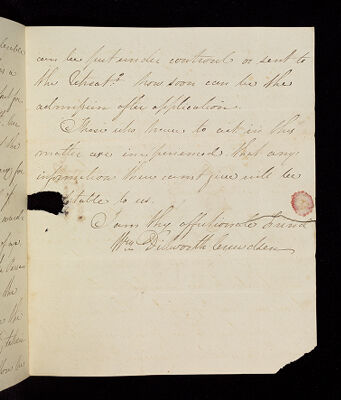 can be put under controul or sent to
the Retreat. how soon can be the
admission after application.
Those who have to act in this
matter are inexperienced that any
information thou canst give will be
table to us.
I am thy affectionate friend
Wm Dilworth Crewdson